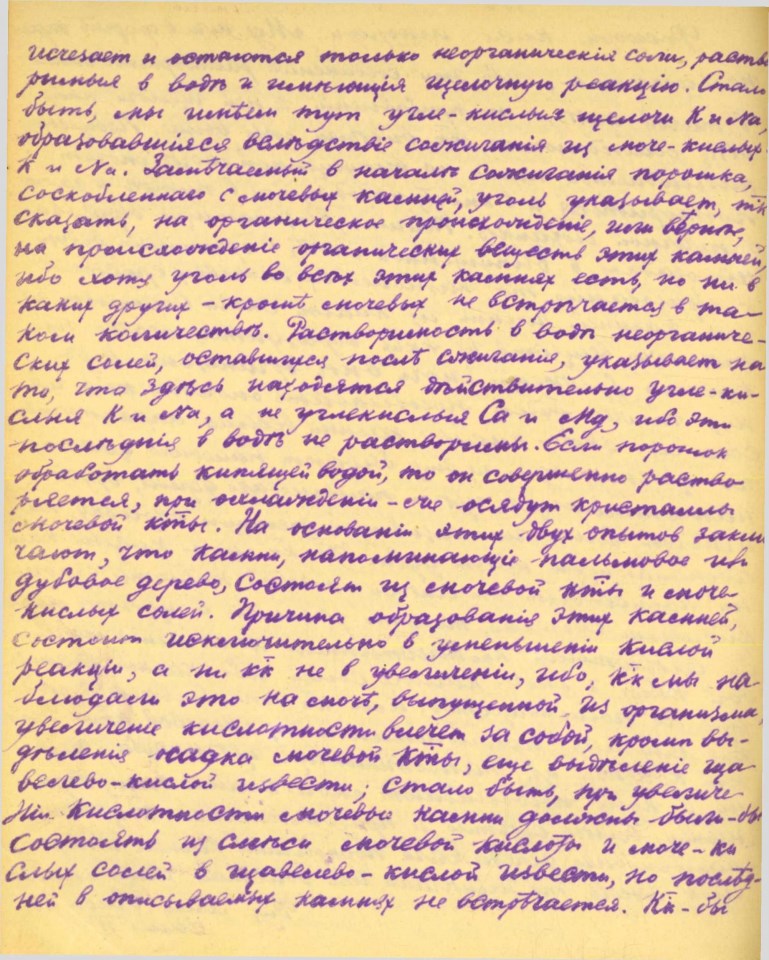 исчезает и остаются только неорганическія соли, раство-
римыя в водѣ и имѣющія щелочную реакцію. Стало
быть, мы имѣем тут угле-кислыя щелочи K и Na,
образовавшіяся вслѣдствіе сожиганія из моче-кислых
K и Na. Замѣчаемый в началѣ сожиганія порошка,
соскобленнаго с мочевых камней, уголь указывает, тк
сказать, на органическое происхожденіе, или вѣрнѣе,
на происхожденіе органических веществ этих камней,
ибо хотя уголь во всѣх этих камнях есть, но ни в
каких других – кромѣ мочевых не встрѣчается в та-
ком количествѣ. Растворимость в водѣ неорганиче-
ских солей, оставшихся послѣ сжиганія, указывает на
то, что здѣсь находятся дѣйствительно угле-ки-
слыя K и Na, а не углекислыя Ca и Mg, ибо эти
послѣднія в водѣ не растворимы. Если порошок
обработать кипящей водой, то он совершенно раство-
ряется, при охлажденіи – же осядут кристаллы
мочевой к-ты. На основаніи этих двух опытов заклю
чают, что камни, напоминающіе пальмовое или
дубовое дерево, состоят из мочевой к-ты и моче-
кислых солей. Причина образованія этих камней,
состоит исключительно в уменьшеніи кислой
реакціи, а ни кк не в увеличеніи, ибо, кк мы на-
блюдали это на мочѣ, выпущенной из организма,
увеличеніе кислотности влечет за собой, кромѣ вы-
дѣленія осадка мочевой к-ты, еще выдѣленіе ща-
велево-кислой извести; стало быть, при увеличе-
ніи кислотности мочевые камни должны были-бы
состоять из смѣси мочевой кислоты и моче-ки
слых солей в щавелево-кислой извести, но послѣд-
ней в описываемых камнях не встрѣчается. Кк-бы